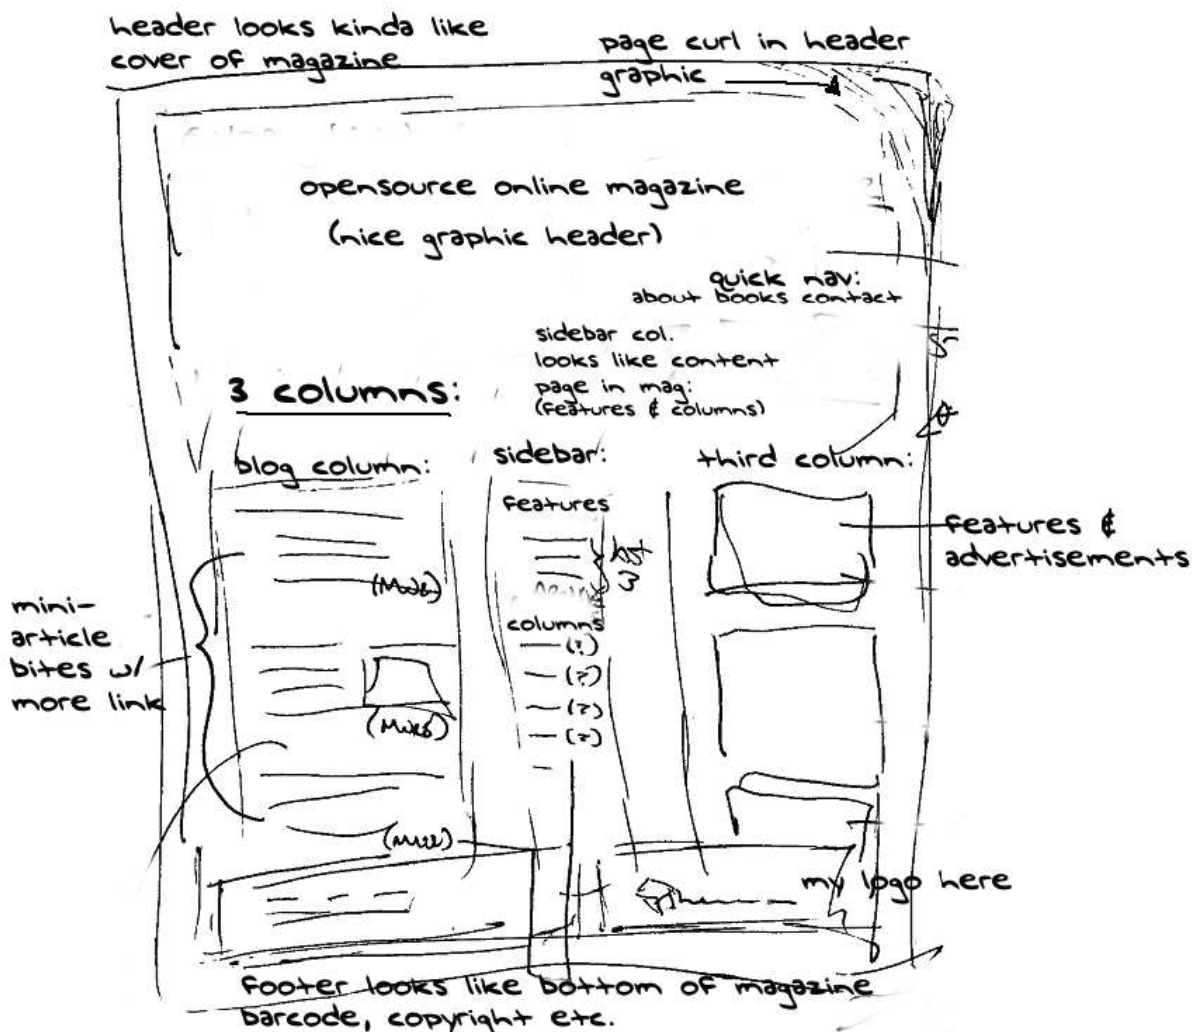 header looks kinda like
cover of magazine
page curl in header
graphic
opensource online magazine
(nice graphic header)
quick nav:
about books contact
sidebar col.
looks like content
page in mag:
(features & columns)
3 columns:
blog column:
sidebar:
third column:
features
features &
advertisements
(more)
mini-
article
bites w/
more link
columns
(?)
(?)
(more)
(?)
(?)
(more)
my logo here
footer looks like bottom of magazine
barcode, copyright etc.